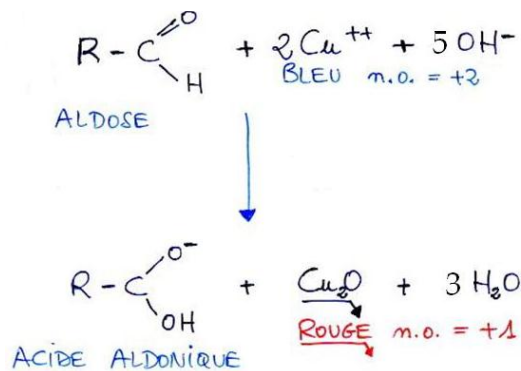 O
R - C + 2 Cu⁺⁺ + 5 OH⁻
H BLEU n.o. = +2
ALDOSE
O⁻
R - C + Cu₂O + 3 H₂O
OH ROUGE n.o. = +1
ACIDE ALDONIQUE